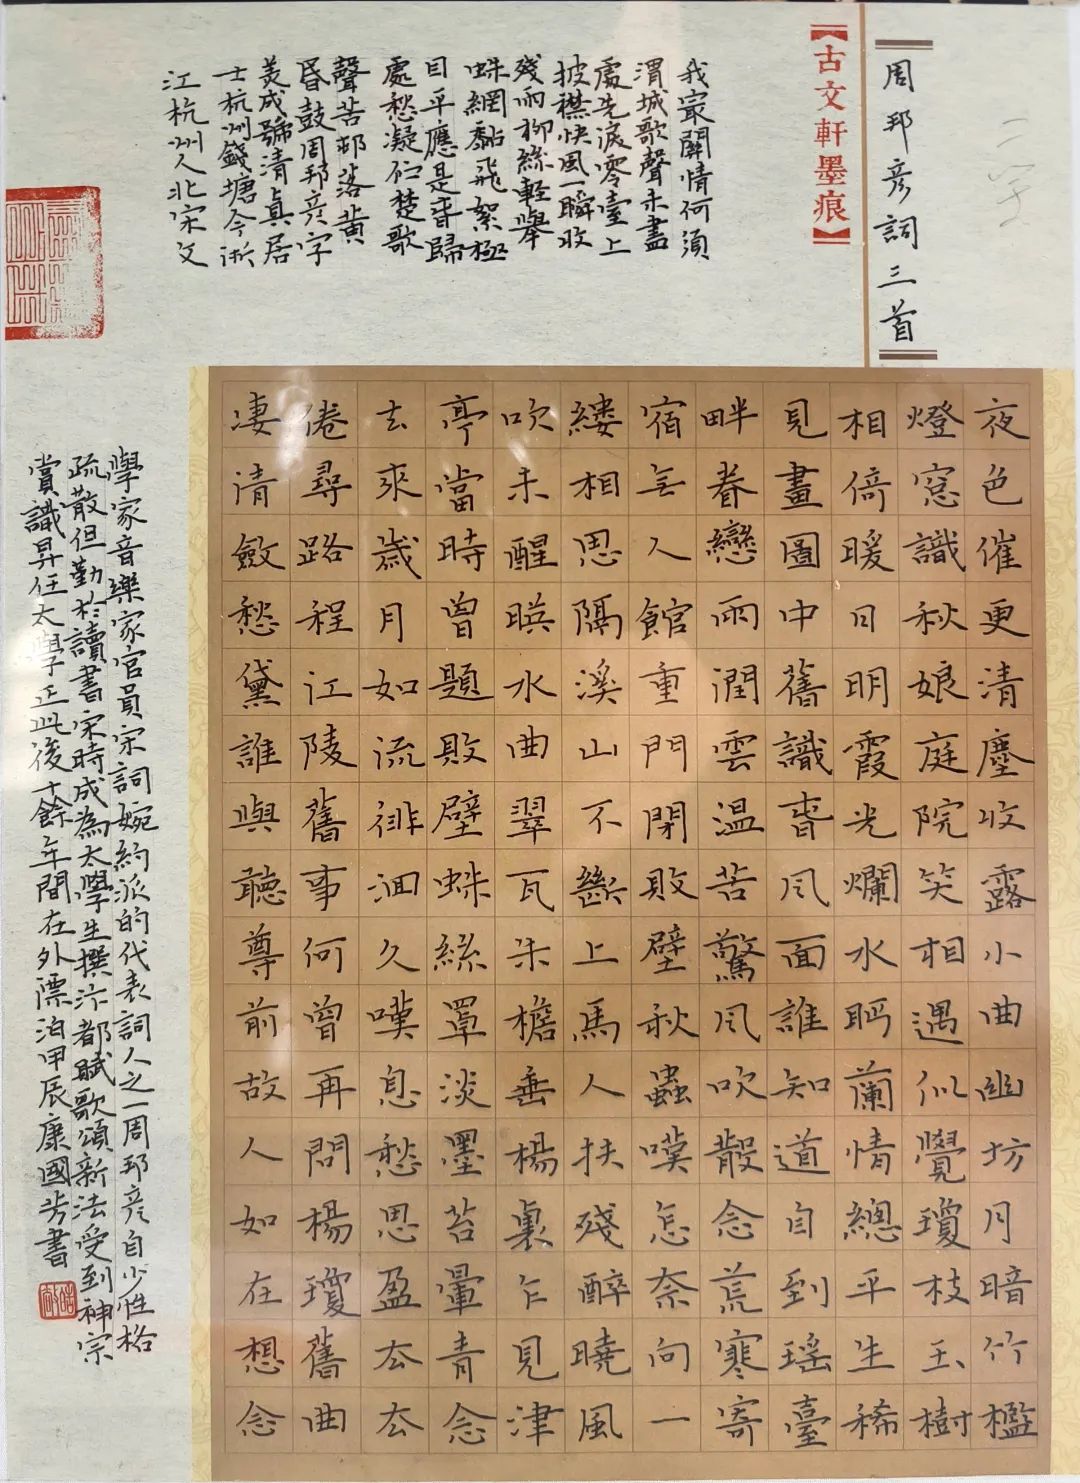 周邦彥詞三首
【古文軒墨痕】
夜色催更清塵收露小曲幽坊月暗竹檻
燈窓識秋娘庭院笑相遇似覺瓊枝玉樹
相倚暖日明霞光爛水眄蘭情總平生稀
見畫圖中舊識春风面誰知道自到瑶臺
畔眷戀雨潤雲温苦驚风吹散念荒寒寄
宿無人館重門閉敗壁秋蟲嘆怎奈向一
縷相思隔溪山不斷上馬人扶殘醉曉風
吹未醒暎水曲翠瓦朱檐垂楊裏乍見津
亭當時曾題敗壁蛛絲罩淡墨苔暈青念
去來歲月如流徘徊久嘆息愁思盈去去
倦尋路程江陵舊事何曾再問楊瓊舊曲
凄清斂愁黛誰與聽尊前故人如在想念
我㝡關情何須
渭城歌聲未盡
處先淚零臺上
披襟快風一瞬收
殘雨柳絲輕舉
蛛網黏飛絮極
目平應是春歸
處愁凝佇楚歌
聲苦邨落黄
昏鼓周邦彥字
美成號清真居
士杭州錢塘今浙
江杭州人北宋文
學家音樂家官員宋詞婉約派的代表詞人之一周邦彥自少性格
疏散但勤於讀書宋時成為太學生撰汴都賦歌頌新法受到神宗
賞識昇任太學正此後十餘年間在外漂泊甲辰康國芳書